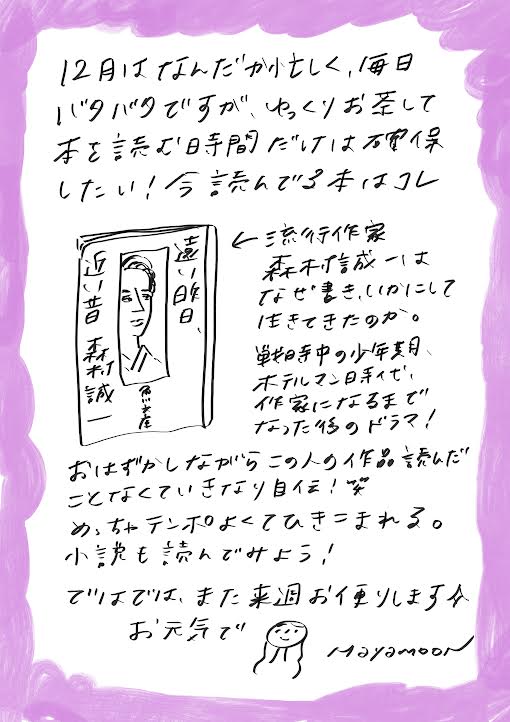 12月はなんだか忙しく、毎日
バタバタですが、ゆっくりお茶して
本を読む時間だけは確保
したい！今読んでる本はコレ
遠い昨日、
近い昔
森村誠一
角川文庫
← 流行作家
森村誠一は
なぜ書き、いかにして
生きてきたのか。
戦時中の少年期、
ホテルマン時代、
作家になるまで
なった後のドラマ！
おはずかしながらこの人の作品読んだ
ことなくていきなり自伝！笑
めっちゃテンポよくてひきこまれる。
小説も読んでみよう！
ではでは、また来週お便りします☆
お元気で
Mayamoon